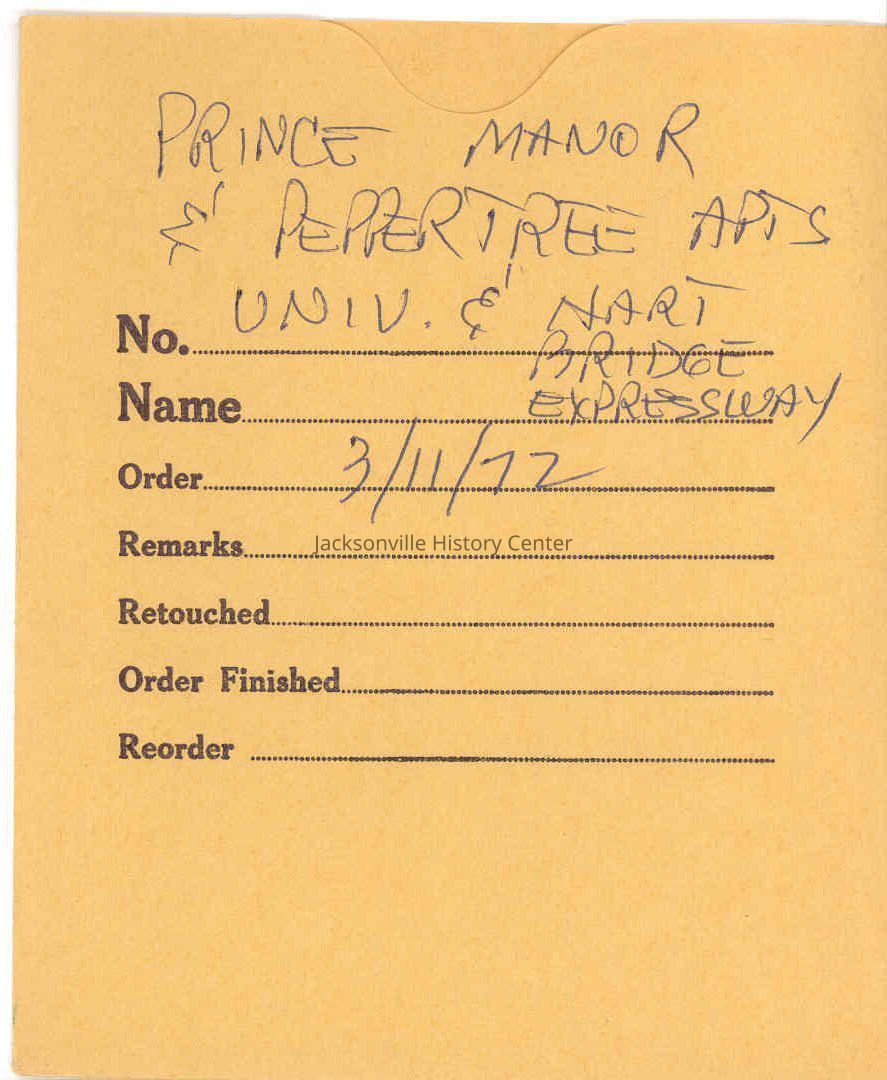 PRINCE MANOR
& PEPPERTREE APTS
UNIV. & HART
No.
BRIDGE
Name
EXPRESSWAY
Order 3/11/72
Remarks
Jacksonville History Center
Retouched
Order Finished
Reorder